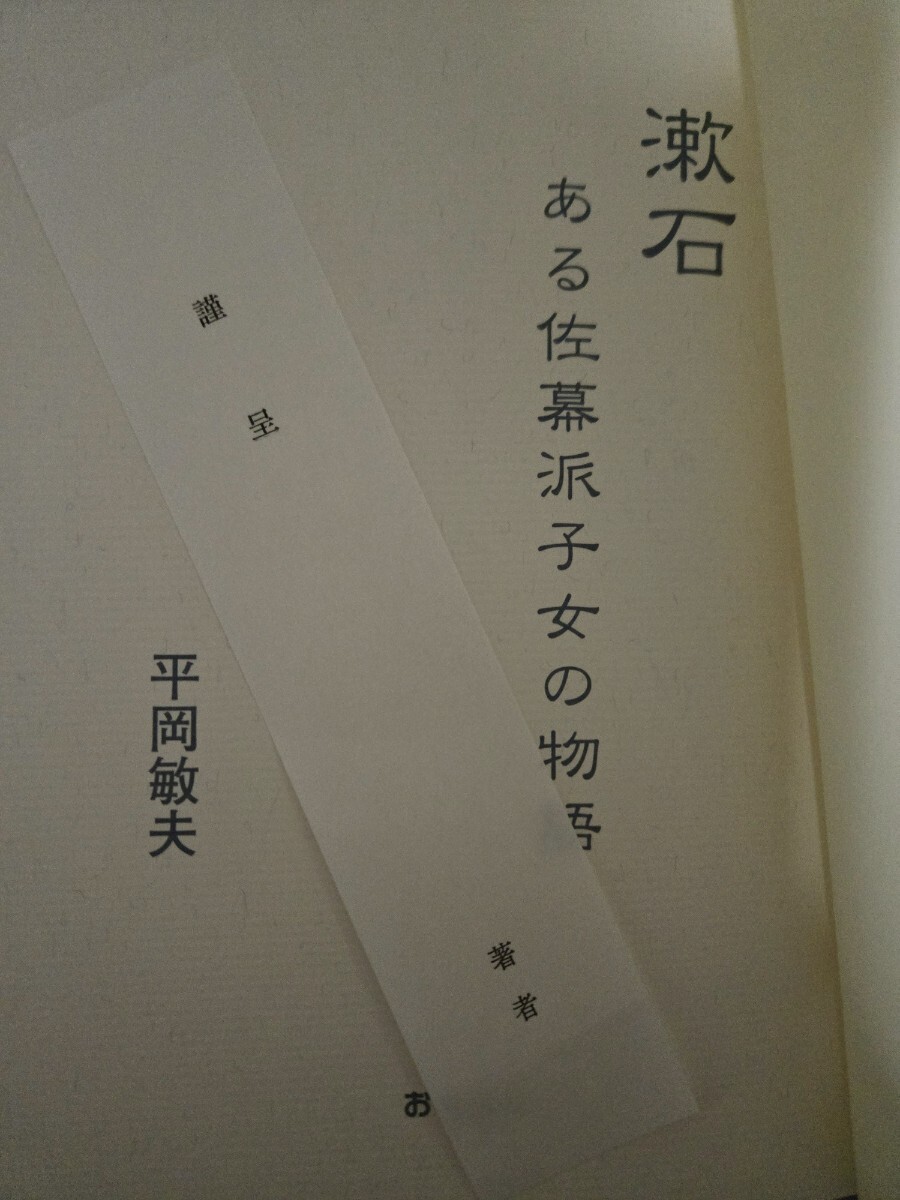 漱石
ある佐幕派子女の物語
平岡敏夫
謹呈
著者
お